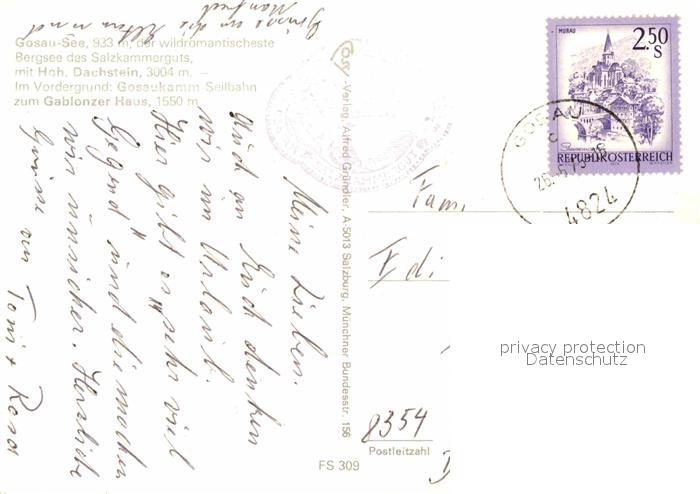 Grüsse an die Eltern und
Manfred
Gosau-See, 933 m, der wildromantischeste
Bergsee des Salzkammerguts,
mit Hoh. Dachstein, 3004 m. –
Im Vordergrund: Gosaukamm-Seilbahn
zum Gablonzer Haus, 1550 m
Meine Lieben.
Auch an Euch denken
wir im Urlaub.
Hier gibt es "sehr viel
Gegend" und die machen
wir unsicher. Herzliche
Grüsse von Toni + Rosa
Cosy-Verlag, Alfred Gründler, A-5013 Salzburg, Münchner Bundesstr. 156
FS 309
MURAU
2.50
S
REPUBLIK ÖSTERREICH
GOSAU
c
4824
Fam.
Edi
8354
Postleitzahl
privacy protection
Datenschutz